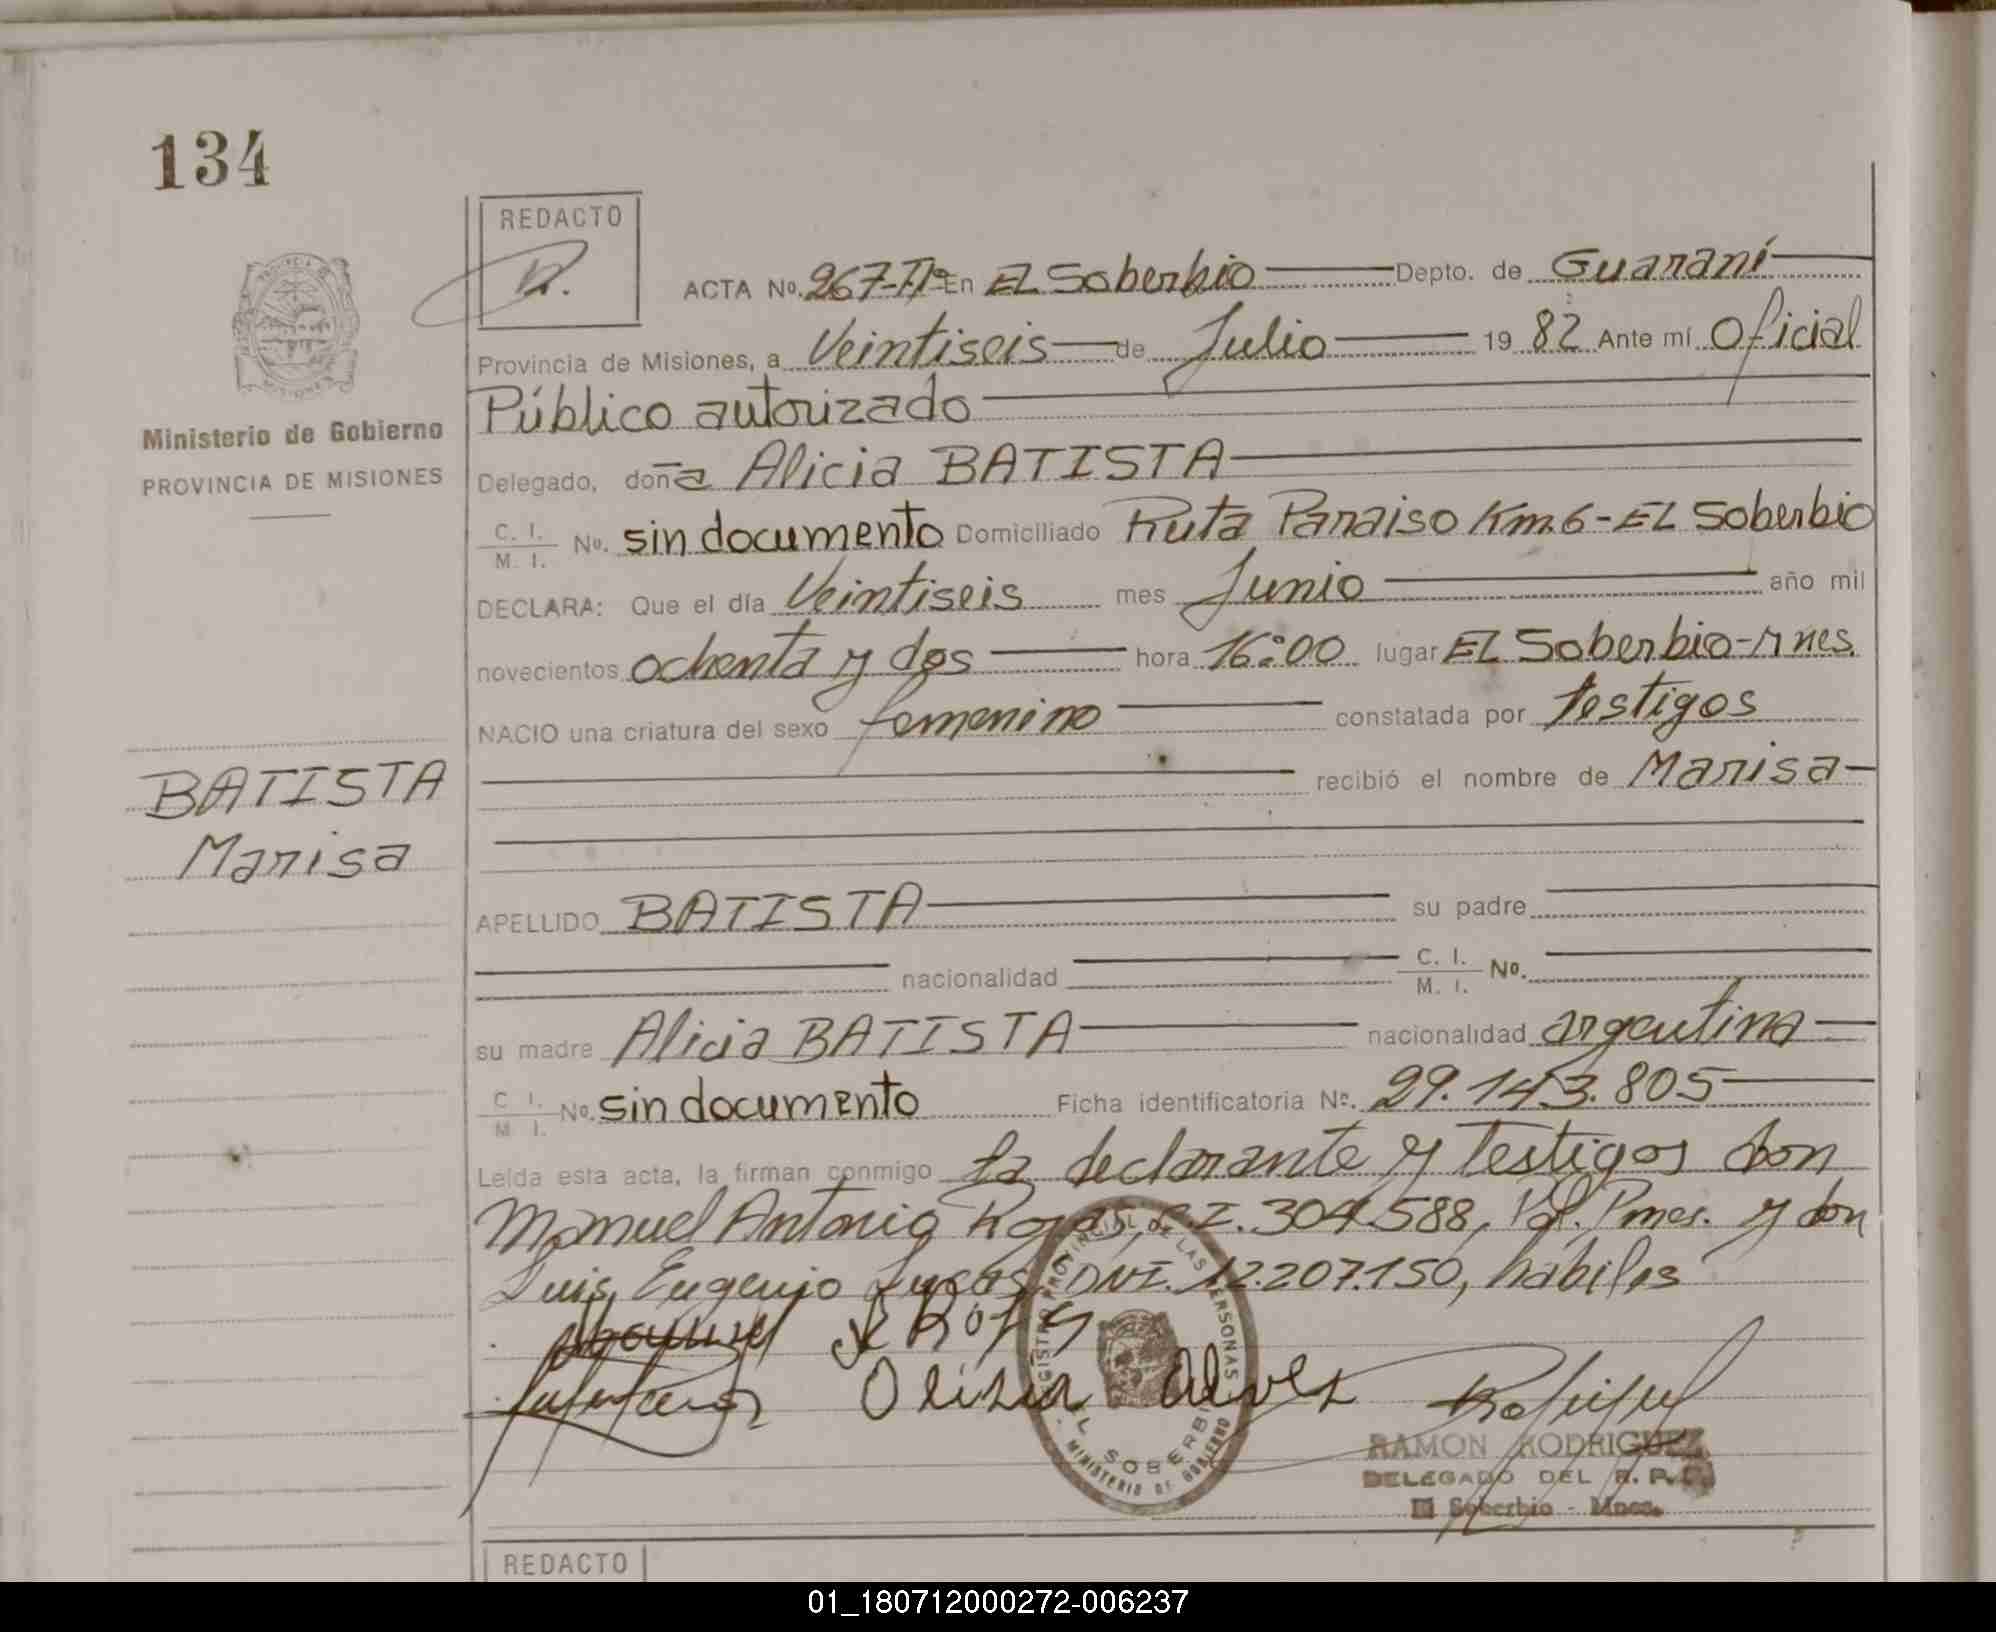 134
REDACTO
ACTA No. 267-Tº En EL Soberbio Depto. de Guaraní
Provincia de Misiones, a Veintiseis de Julio 19 82 Ante mí Oficial
Público autorizado
Ministerio de Gobierno
PROVINCIA DE MISIONES
Delegado, doña Alicia BATISTA
C. I. / M. I. No. sin documento Domiciliado Ruta Paraiso Km.6 - EL Soberbio
DECLARA: Que el día Veintiseis mes Junio año mil
novecientos ochenta y dos hora 16:00 lugar EL Soberbio - Mnes.
NACIO una criatura del sexo femenino constatada por testigos
recibió el nombre de Marisa
BATISTA
Marisa
APELLIDO BATISTA su padre
nacionalidad C. I. / M. I. No.
su madre Alicia BATISTA nacionalidad argentina
C. I. / M. I. No. sin documento Ficha identificatoria Nº. 29.143.805
Leída esta acta, la firman conmigo la declarante y testigos don
Manuel Antonio Rojas, C.I. 304.588, Pol. Pmes. y don
Luis Eugenio DNI. 12.207.150, hábiles
REGISTRO PROVINCIAL DE LAS PERSONAS
EL SOBERBIO
MINISTERIO DE GOBIERNO
Alves
RAMON RODRIGUEZ
DELEGADO DEL R. P. P.
El Soberbio - Mnes.
REDACTO
01_180712000272-006237